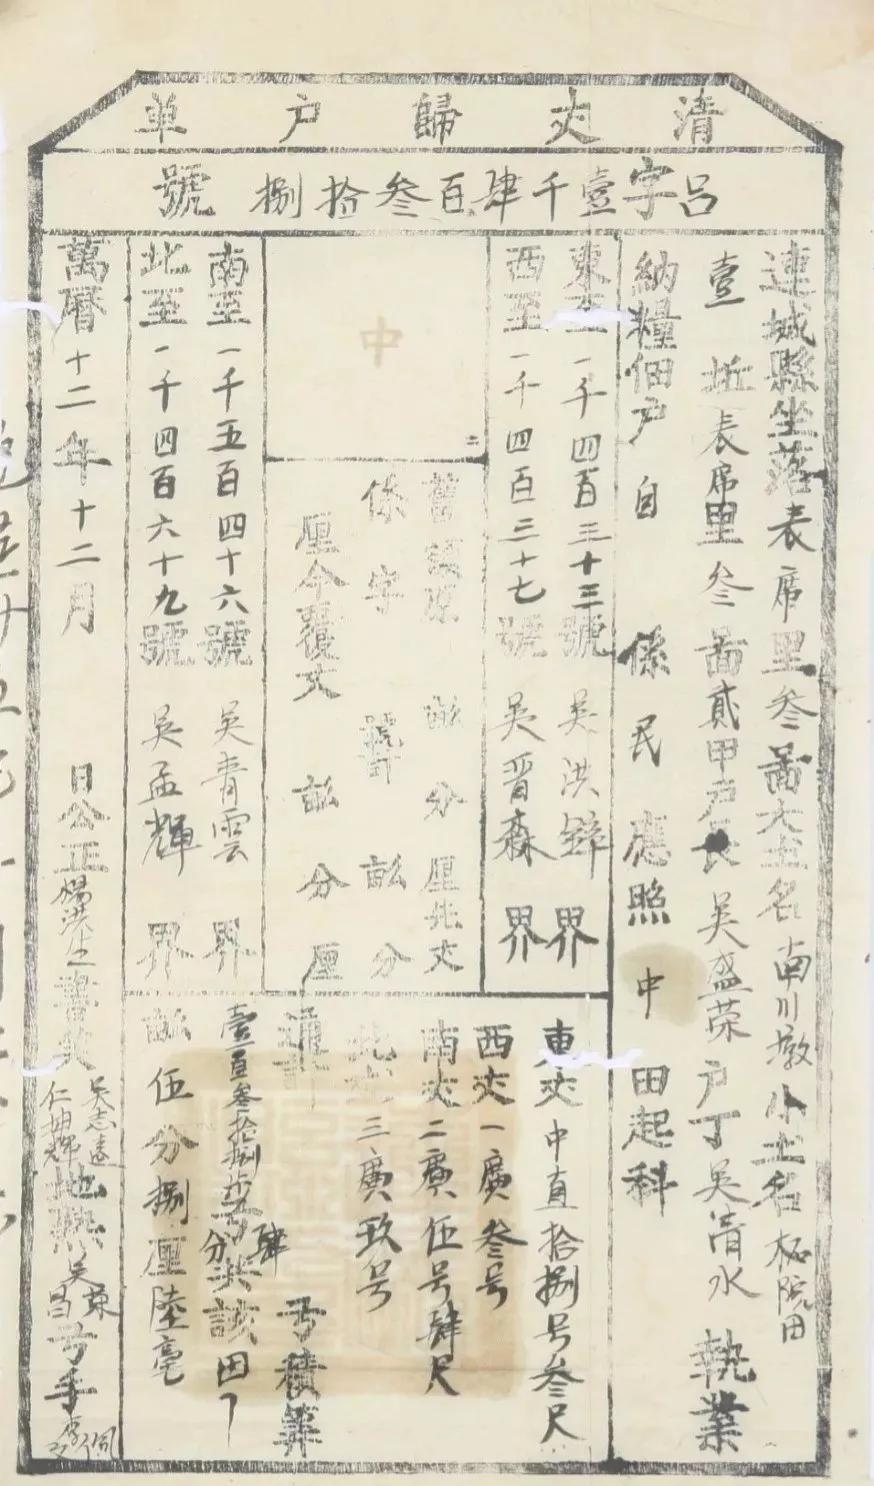 清丈歸户单
吕字壹千肆百叁拾捌號
連城縣坐落表席里叁啚大土名南川墩小土名柘院田
壹坵表席里叁啚貳甲户長吳盛荣户丁吳清水執業
納糧佃户自係民應照中田起科
東至一千四百三十三號吳洪鋅界
西至一千四百三十七號吳晋森界
中
二
舊額原畝分厘先丈
係字號計畝分
厘今覆丈畝分厘
南至一千五百四十六號吳青雲界
北至一千四百六十九號吳孟輝界
東丈中直拾捌号叁尺
西丈一廣叁号
南丈二廣伍号肆尺
北丈三廣玖号
通計弓積筭
壹百叁拾捌步肆分弓共該田
畝伍分捌厘陸毫
萬曆十二年十二月日公正楊洪生書筭吳志遠仁抽輝地興吳東昌弓手